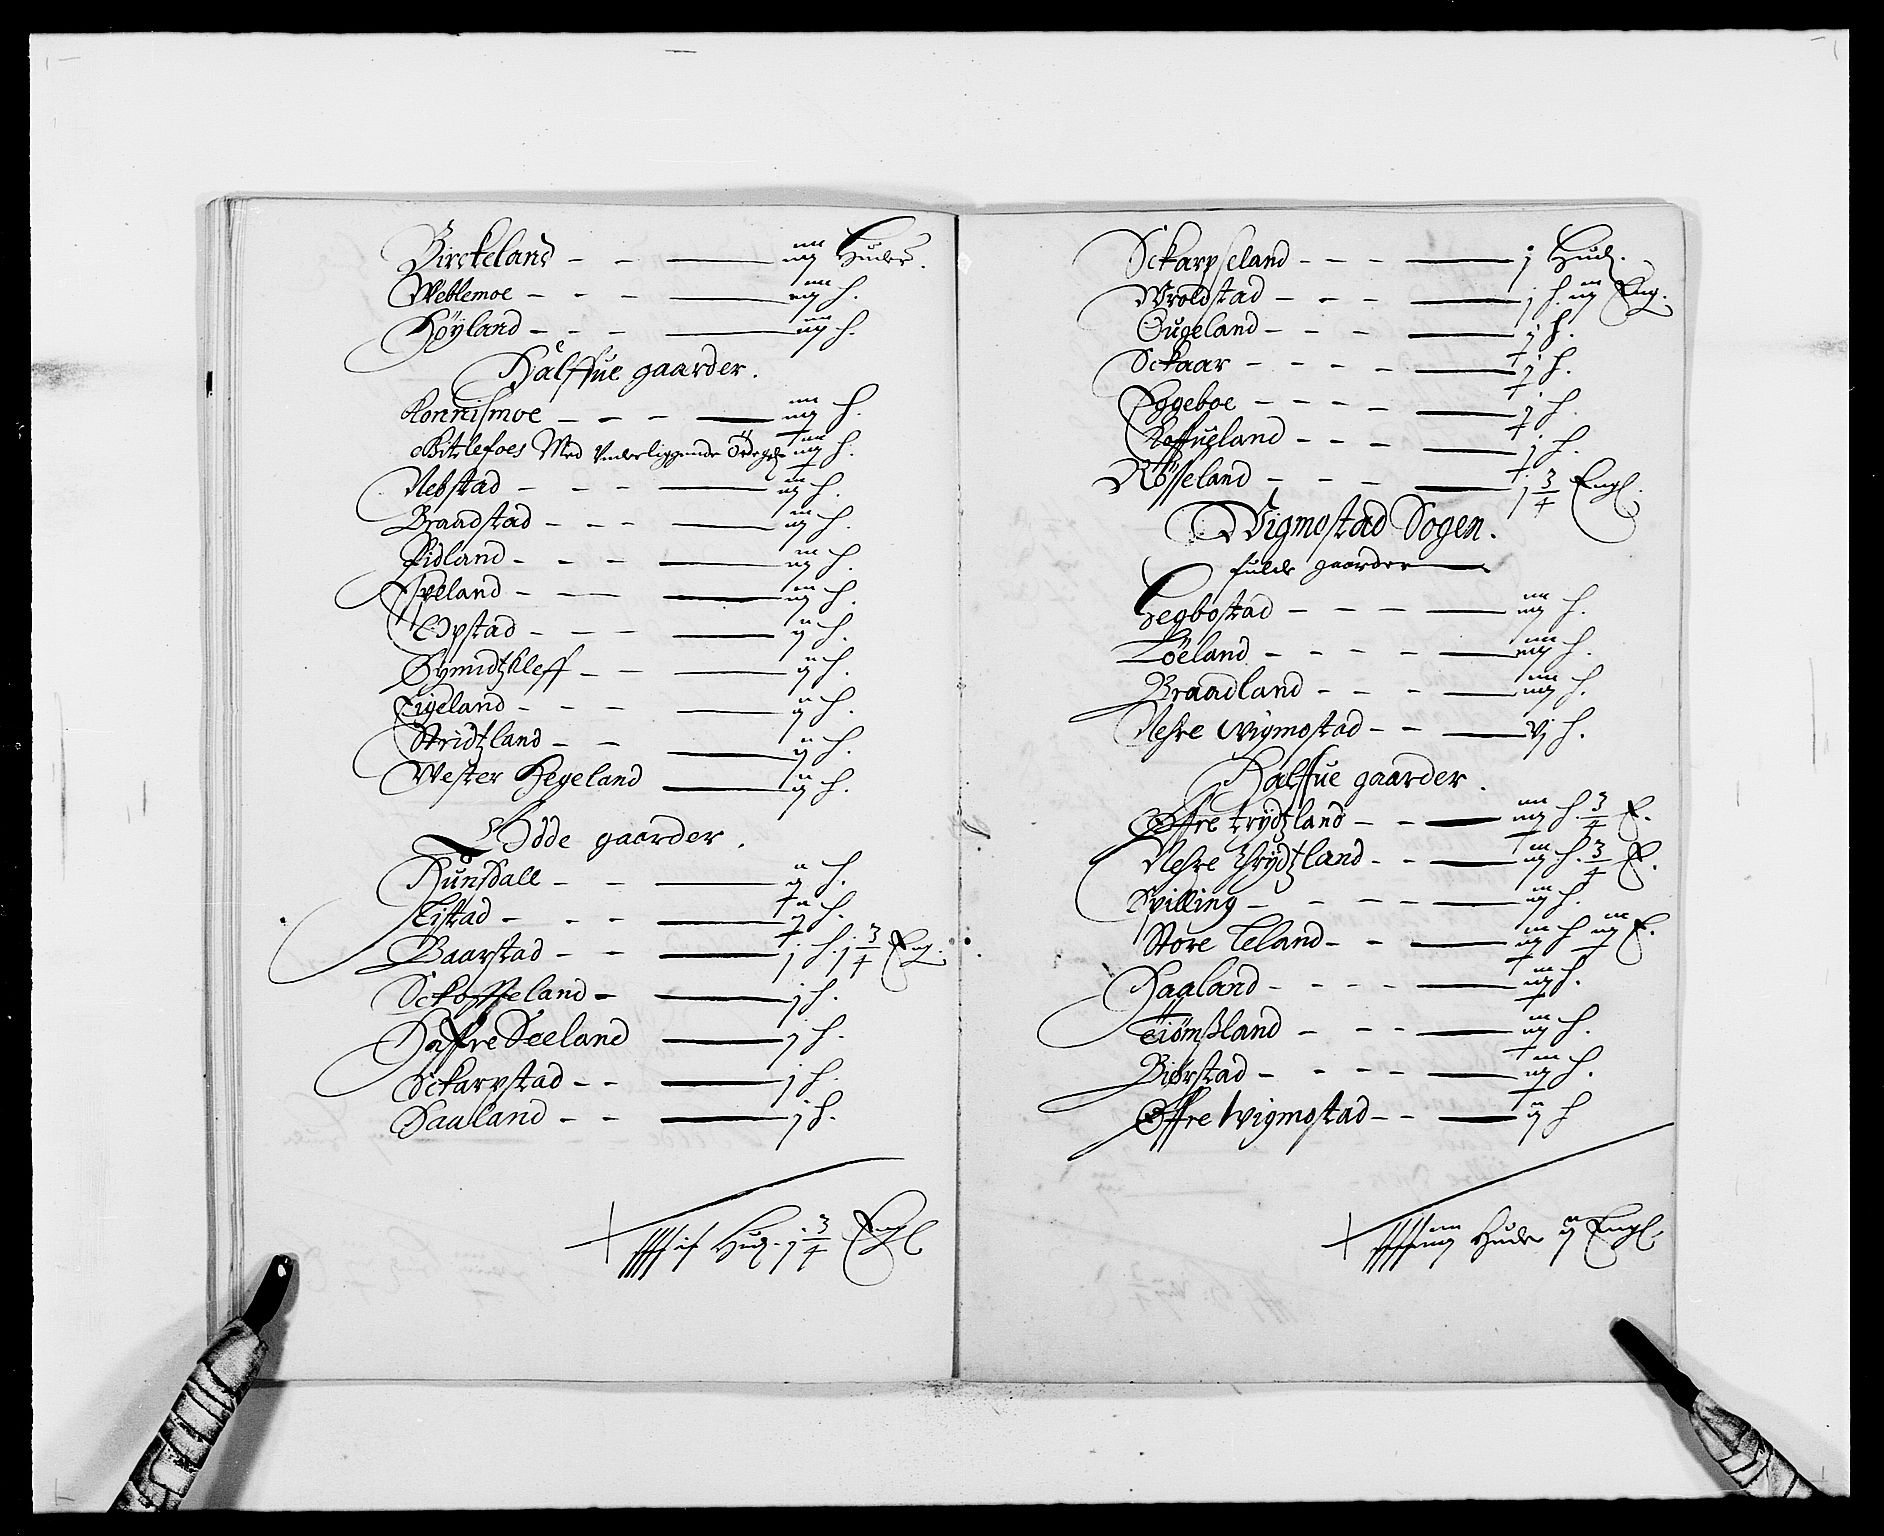 Birckeland - - — iiij Huder.
Weblemoe - - - — iiij h.
Høÿland - - - — iiij h.
Halffue gaarder.
Konnismoe - - - — iiij h.
Bitlefoes Med Vnderliggende Ödegr iiij h.
Nebstad - - - — iij h.
Braadstad - - - — iij h.
Fidland - - - — iij h.
Isveland - - - — iij h.
Opstad - - - — ij h.
Gymidtzkleff - - — ij h.
Eigeland - - - — ij h.
Stridtzland - - — ij h.
Wester Hegeland — ij h.
Ödde gaarder.
Hunsdall - - — ij h.
Tistad - - - — ij h.
Baarstad - - — j h. j 3/4 Eng.
Sckoffteland - — j h.
Høffre Seeland — j h.
Sckarpstad - - — j h.
Haaland - - — j h.
Hud. j 3/4 Engl
Sckarpseland - - - — j Hud.
Wroldstad - - - — j h. iij Eng.
Øugeland - - - — j h.
Sckaar - - - - — j h.
Eggeboe - - - - — j h.
Roffueland - - - — j h.
Røsseland - - - — j 3/4 Engl.
Wigmostad Sogen.
fulde gaarder —
Hegbostad - - - — iiij h.
Löeland - - - - — iiij h.
Braadland - - - — iiij h.
Nehre Wigmostad - - — vj h.
Halffue gaarder.
Øffre trydtzland - - — iiij h. 3/4 E.
Nehre Thrydtzland - - — iij h. 3/4 E.
Spilling - - - - — iij h.
Store Teland - - — iij h iij E.
Haaland - - - - — iij h.
Tiømsland - - - — iij h.
Biørstad - - - - — iij h.
Øffre Wigmostad - - — ij h
Huder ij Engl.